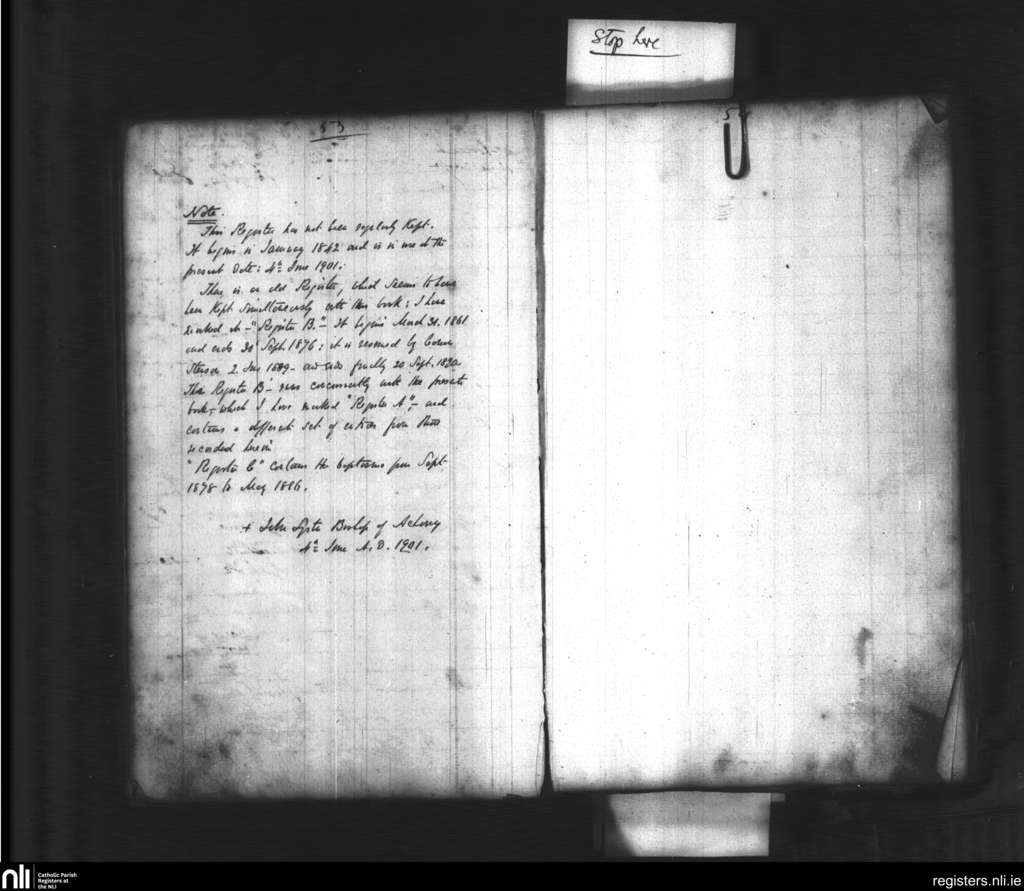 Stop here
53
Note.
This Register has not been regularly kept.
It begins in January 1842 and is in use to the
present date: 4th June 1901.
There is an old Register, which seems to have
been kept simultaneously with this book: I have
marked it - "Register B." - It begins March 31. 1861
and ends 30 Sept. 1876: it is resumed by
2. 1889 - and ends finally 20 Sept. 1890.
This Register B - runs concurrently with the present
book, which I have marked "Register A", - and
contains a different set of entries from those
recorded herein
"Register C" contains the baptisms from Sept
1878 to May 1886.
+ John Lyster Bishop of Achonry
4th June A.D. 1901.
nli
Catholic Parish
Registers at
the NLI
registers.nli.ie